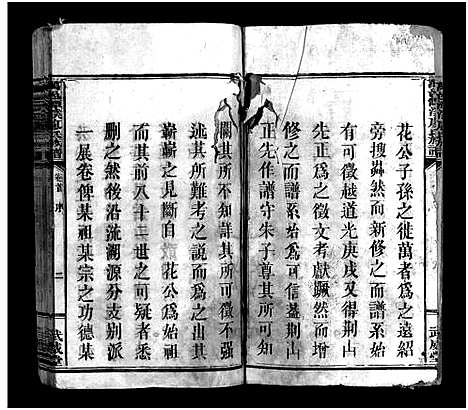 花公子孫之徙萬者爲之遠紹
旁搜蝨然而新修之而譜系始
有可徵越道光庚戌又得荆山
先正爲之徵文考獻厥然而增
修之而譜系始爲可信蓋荆山
正先作譜守朱子尊其所聞
闕其所不知詳其所可徵不強
述其所難考之說而爲之出其
嶄嶄之見斷自 花公爲始祖
而其前八十三世之可疑者悉
刪之然後沿流溯源分支别派
一展卷俾某祖某宗之功德某
卷首 序 二
武威堂
武威堂